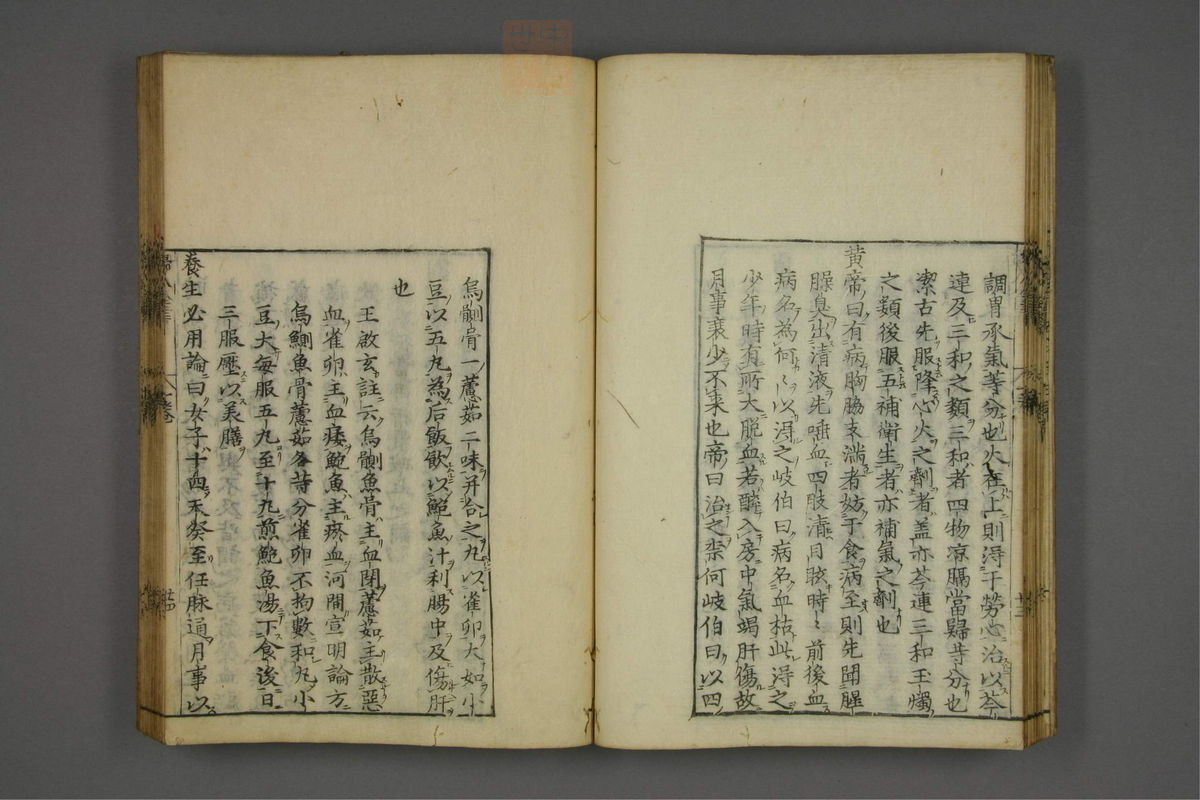 調胃承氣等分也火在上則得于勞心治以芩
連及三和之類三和者四物凉膈當歸等分也
潔古先服降心火之劑者盖亦芩連三和玉燭
之類後服五補衛生者亦補氣之劑也
黄帝曰有病胸脇支滿者妨于食病至則先聞腥
臊臭出清液先唾血四肢清目眩時〻前後血
病名為何〻以淂之岐伯曰病名血枯此淂之
少年時有所大脫血若醉入房中氣竭肝傷故
月事衰少不来也帝曰治之柰何岐伯曰以四
烏鰂骨一藘茹二味并合之丸以雀卵大如小
豆以五丸為后飯飲以鮑魚汁利腸中及傷肝
也
王啟玄註云烏鰂魚骨主血閉藘茹主散惡
血雀卵主血痿鮑魚主瘀血河間宣明論方
烏鰂魚骨藘茹各等分雀卵不拘數和丸小
豆大每服五丸至十丸煎鮑魚湯下食後日
三服壓以美膳
養生必用論曰女子十四天癸至任脉通月事以